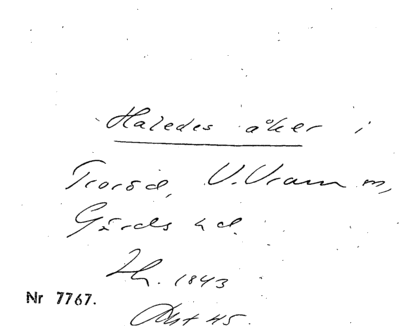 Haledes åker i
Troröd, V. Vram sn,
Gärds hd.
Zh. 1843
Nr 7767.
Akt 45.